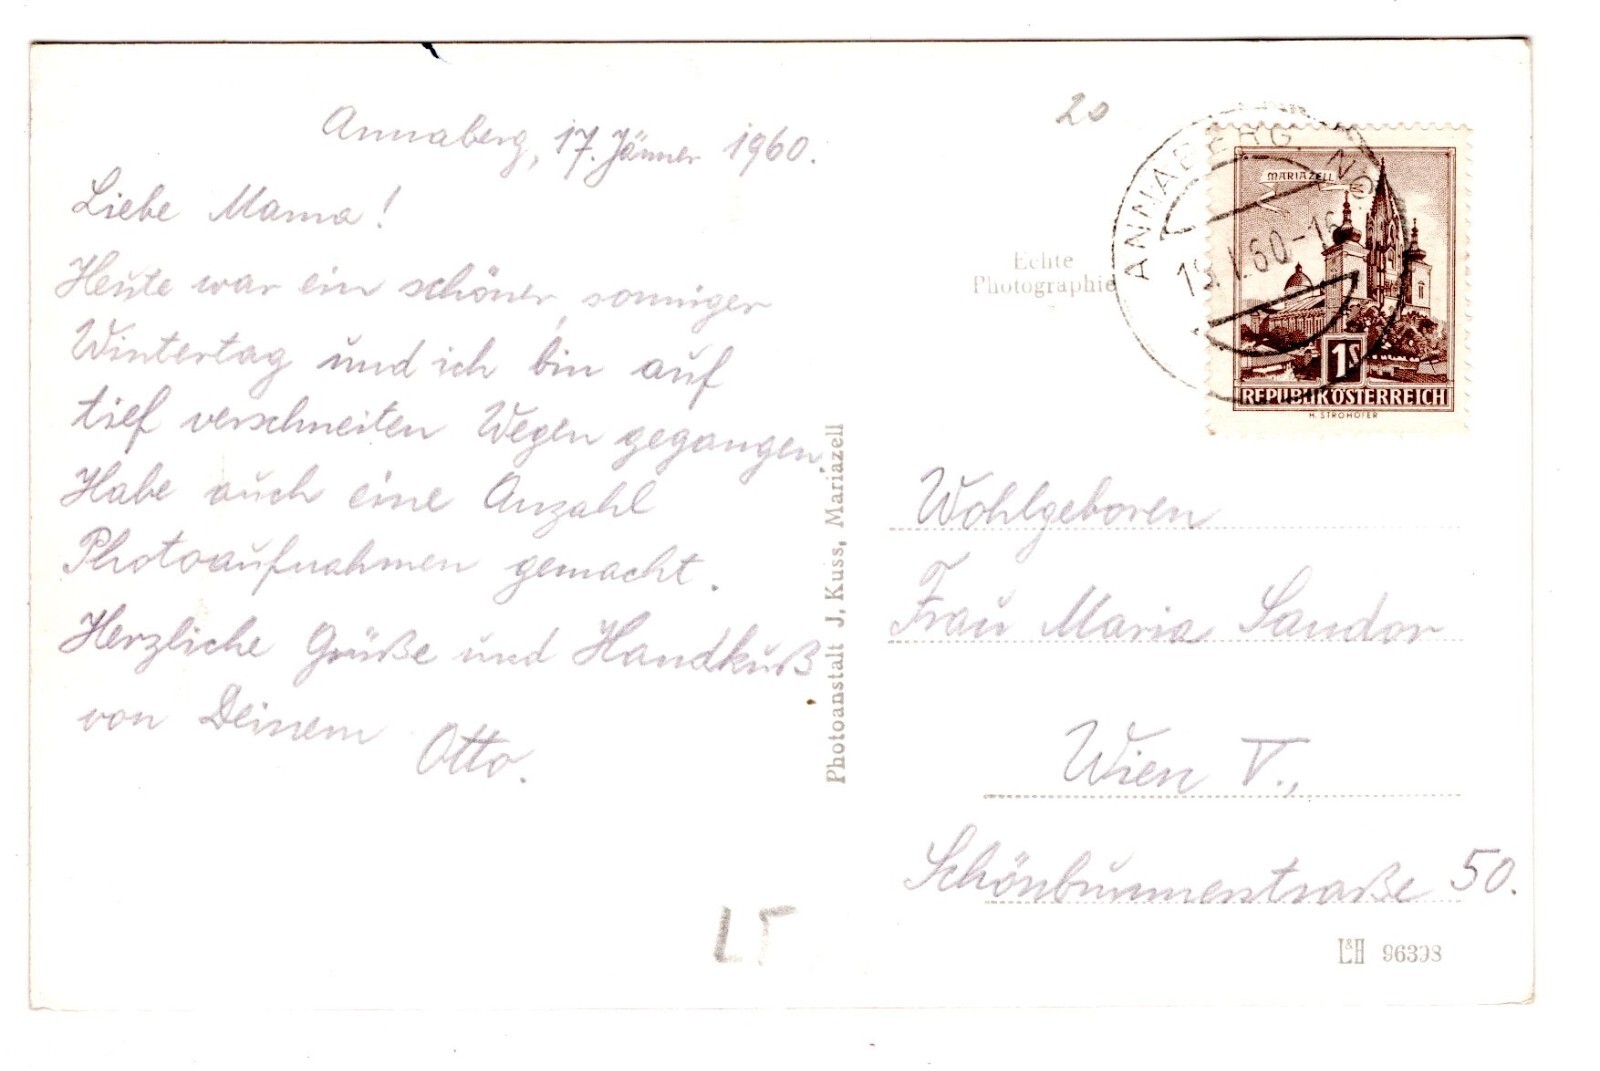 Annaberg, 17. Jänner 1960.
Liebe Mama!
Heute war ein schöner, sonniger
Wintertag und ich bin auf
tief verschneiten Wegen gegangen.
Habe auch eine Anzahl
Photoaufnahmen gemacht.
Herzliche Grüße und Handkuß
von Deinem
Otto.
LT
Photoanstalt J. Kuss, Mariazell
20
Echte
Photographie
ANNABERG, NÖ
I.60-16
MARIAZELL
1S
REPUBLIK ÖSTERREICH
H. STROHOFER
Wohlgeboren
Frau Maria Sandor
Wien V.,
Schönbrunnerstraße 50.
L&H 96398